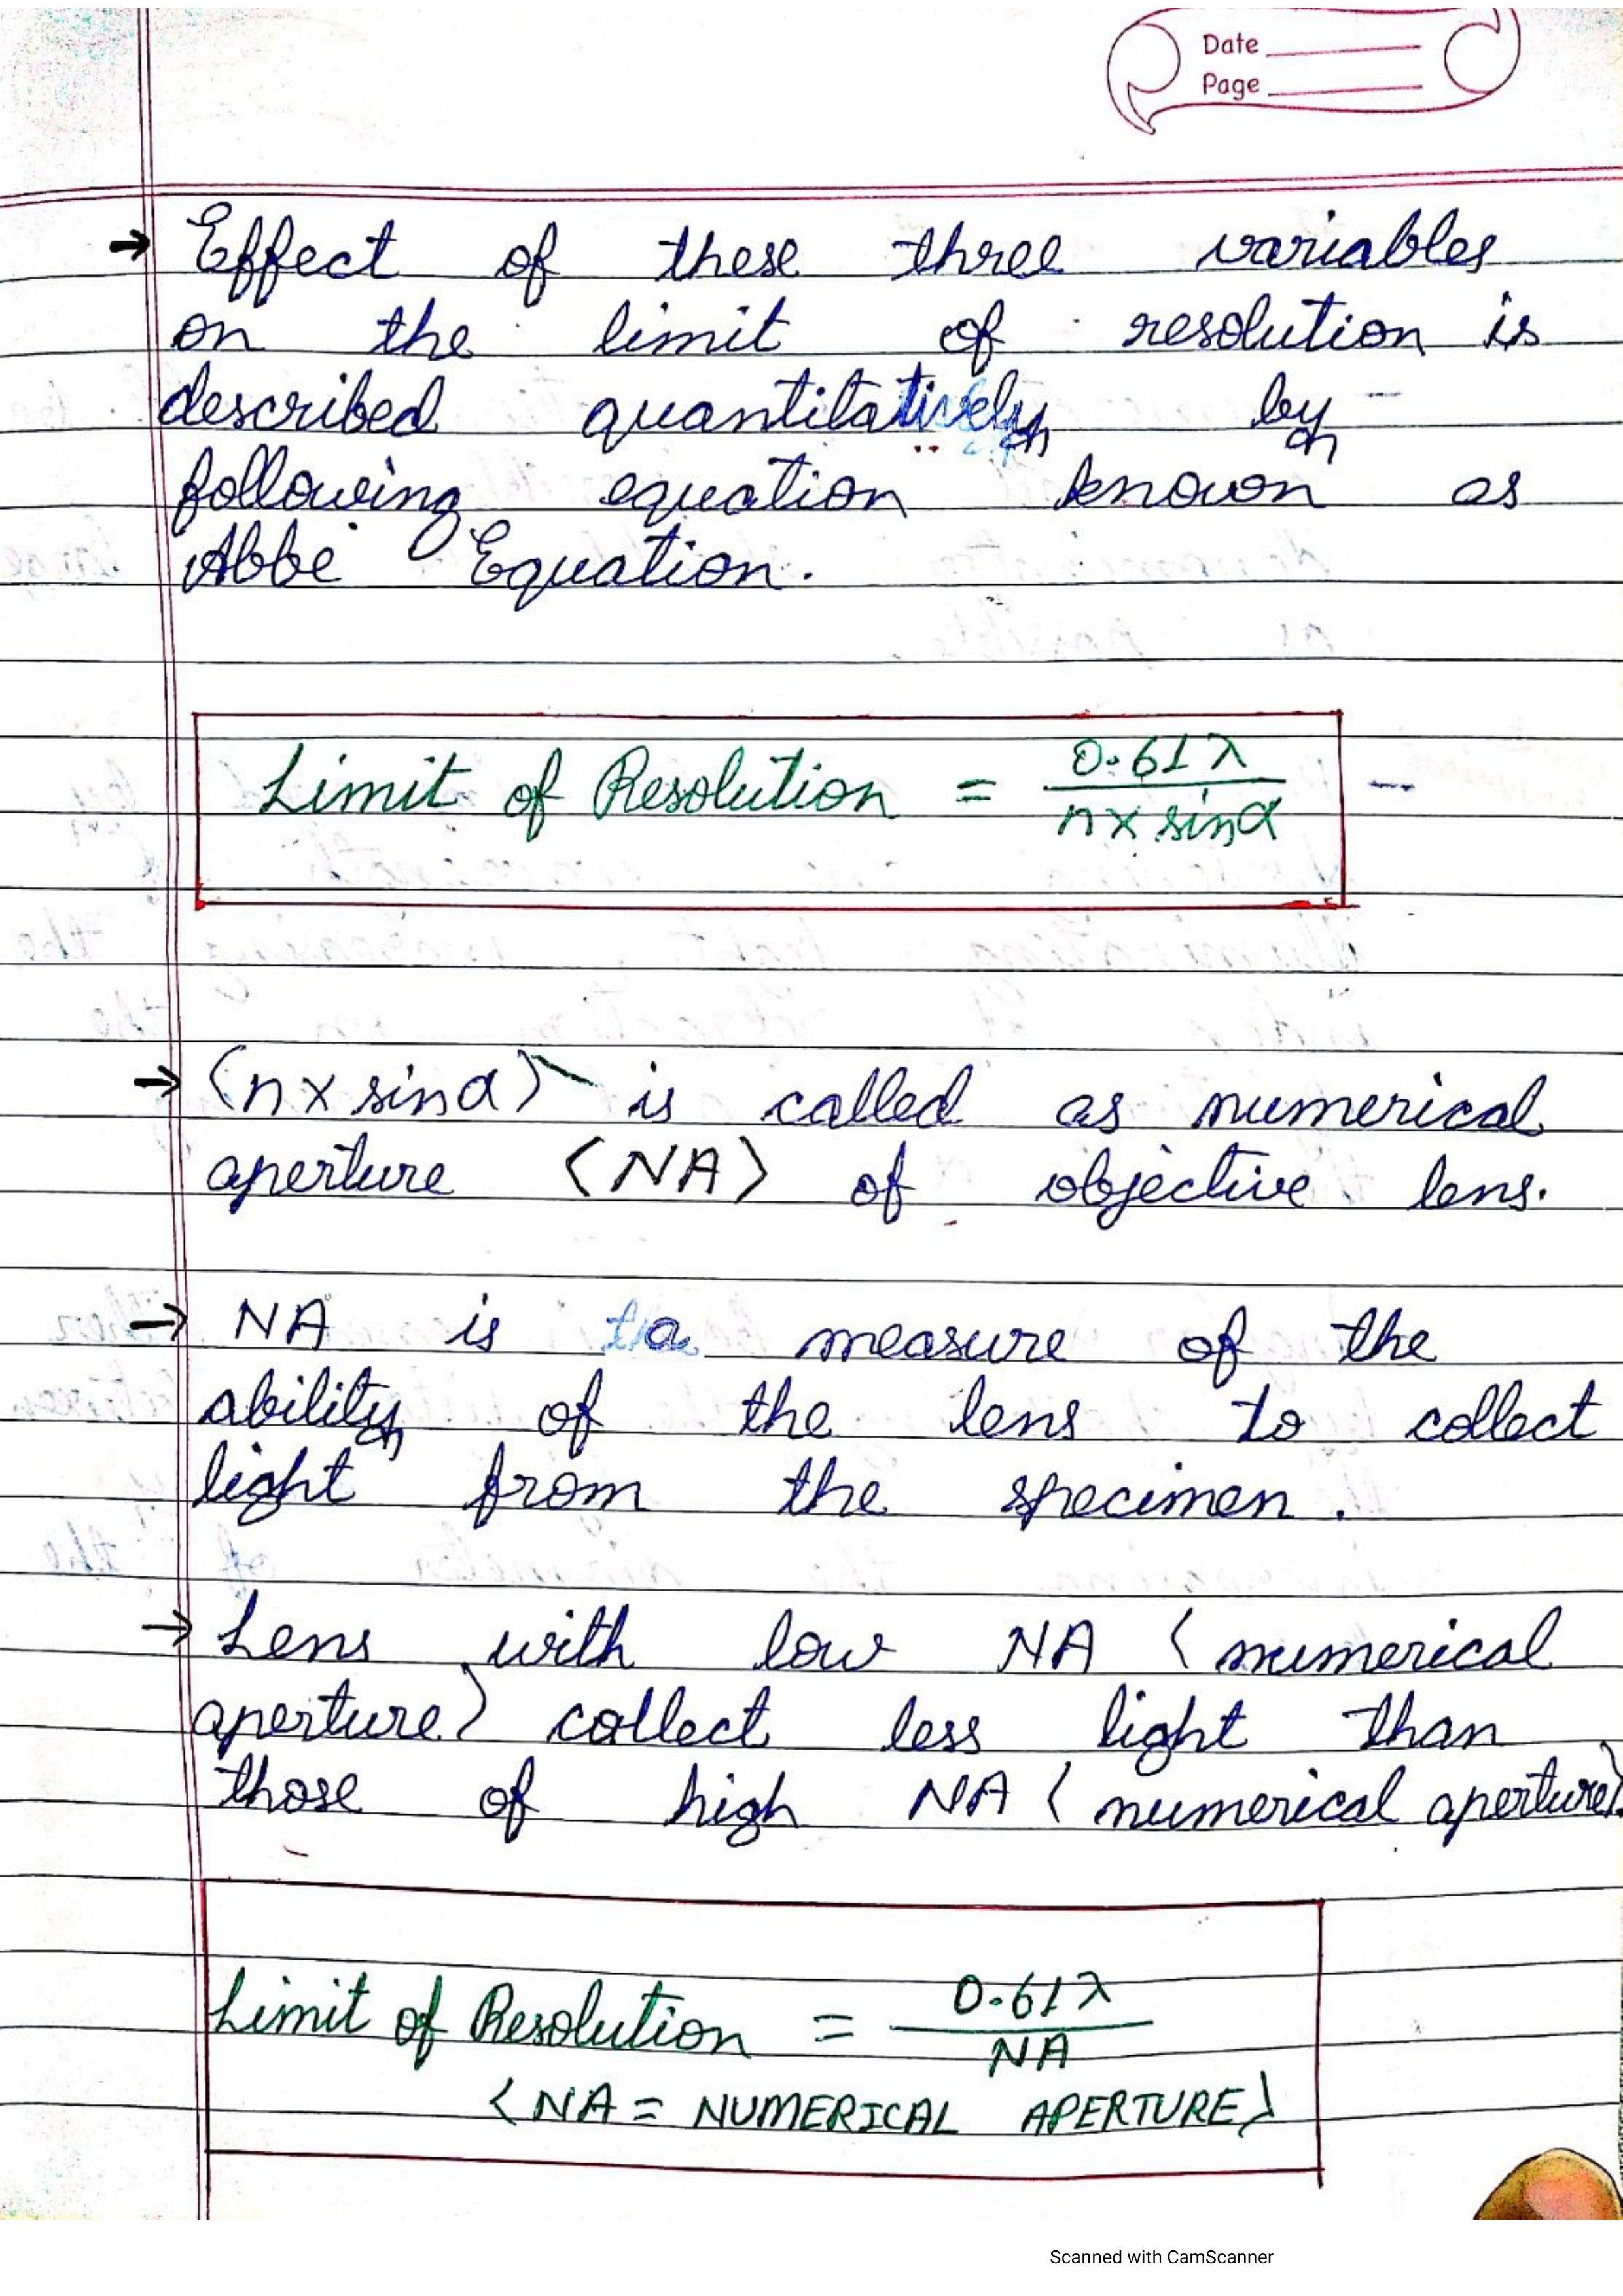 Date
Page
→ Effect of these three variables
on the limit of resolution is
described quantitatively by -
following equation known as
Abbe Equation.
Limit of Resolution = 0.61λ / n x sinα -
→ (n x sinα) is called as numerical
aperture (NA) of objective lens.
→ NA is a measure of the
ability of the lens to collect
light from the specimen.
→ Lens with low NA (numerical
aperture) collect less light than
those of high NA (numerical aperture).
Limit of Resolution = 0.61λ / NA
(NA = NUMERICAL APERTURE)
Scanned with CamScanner